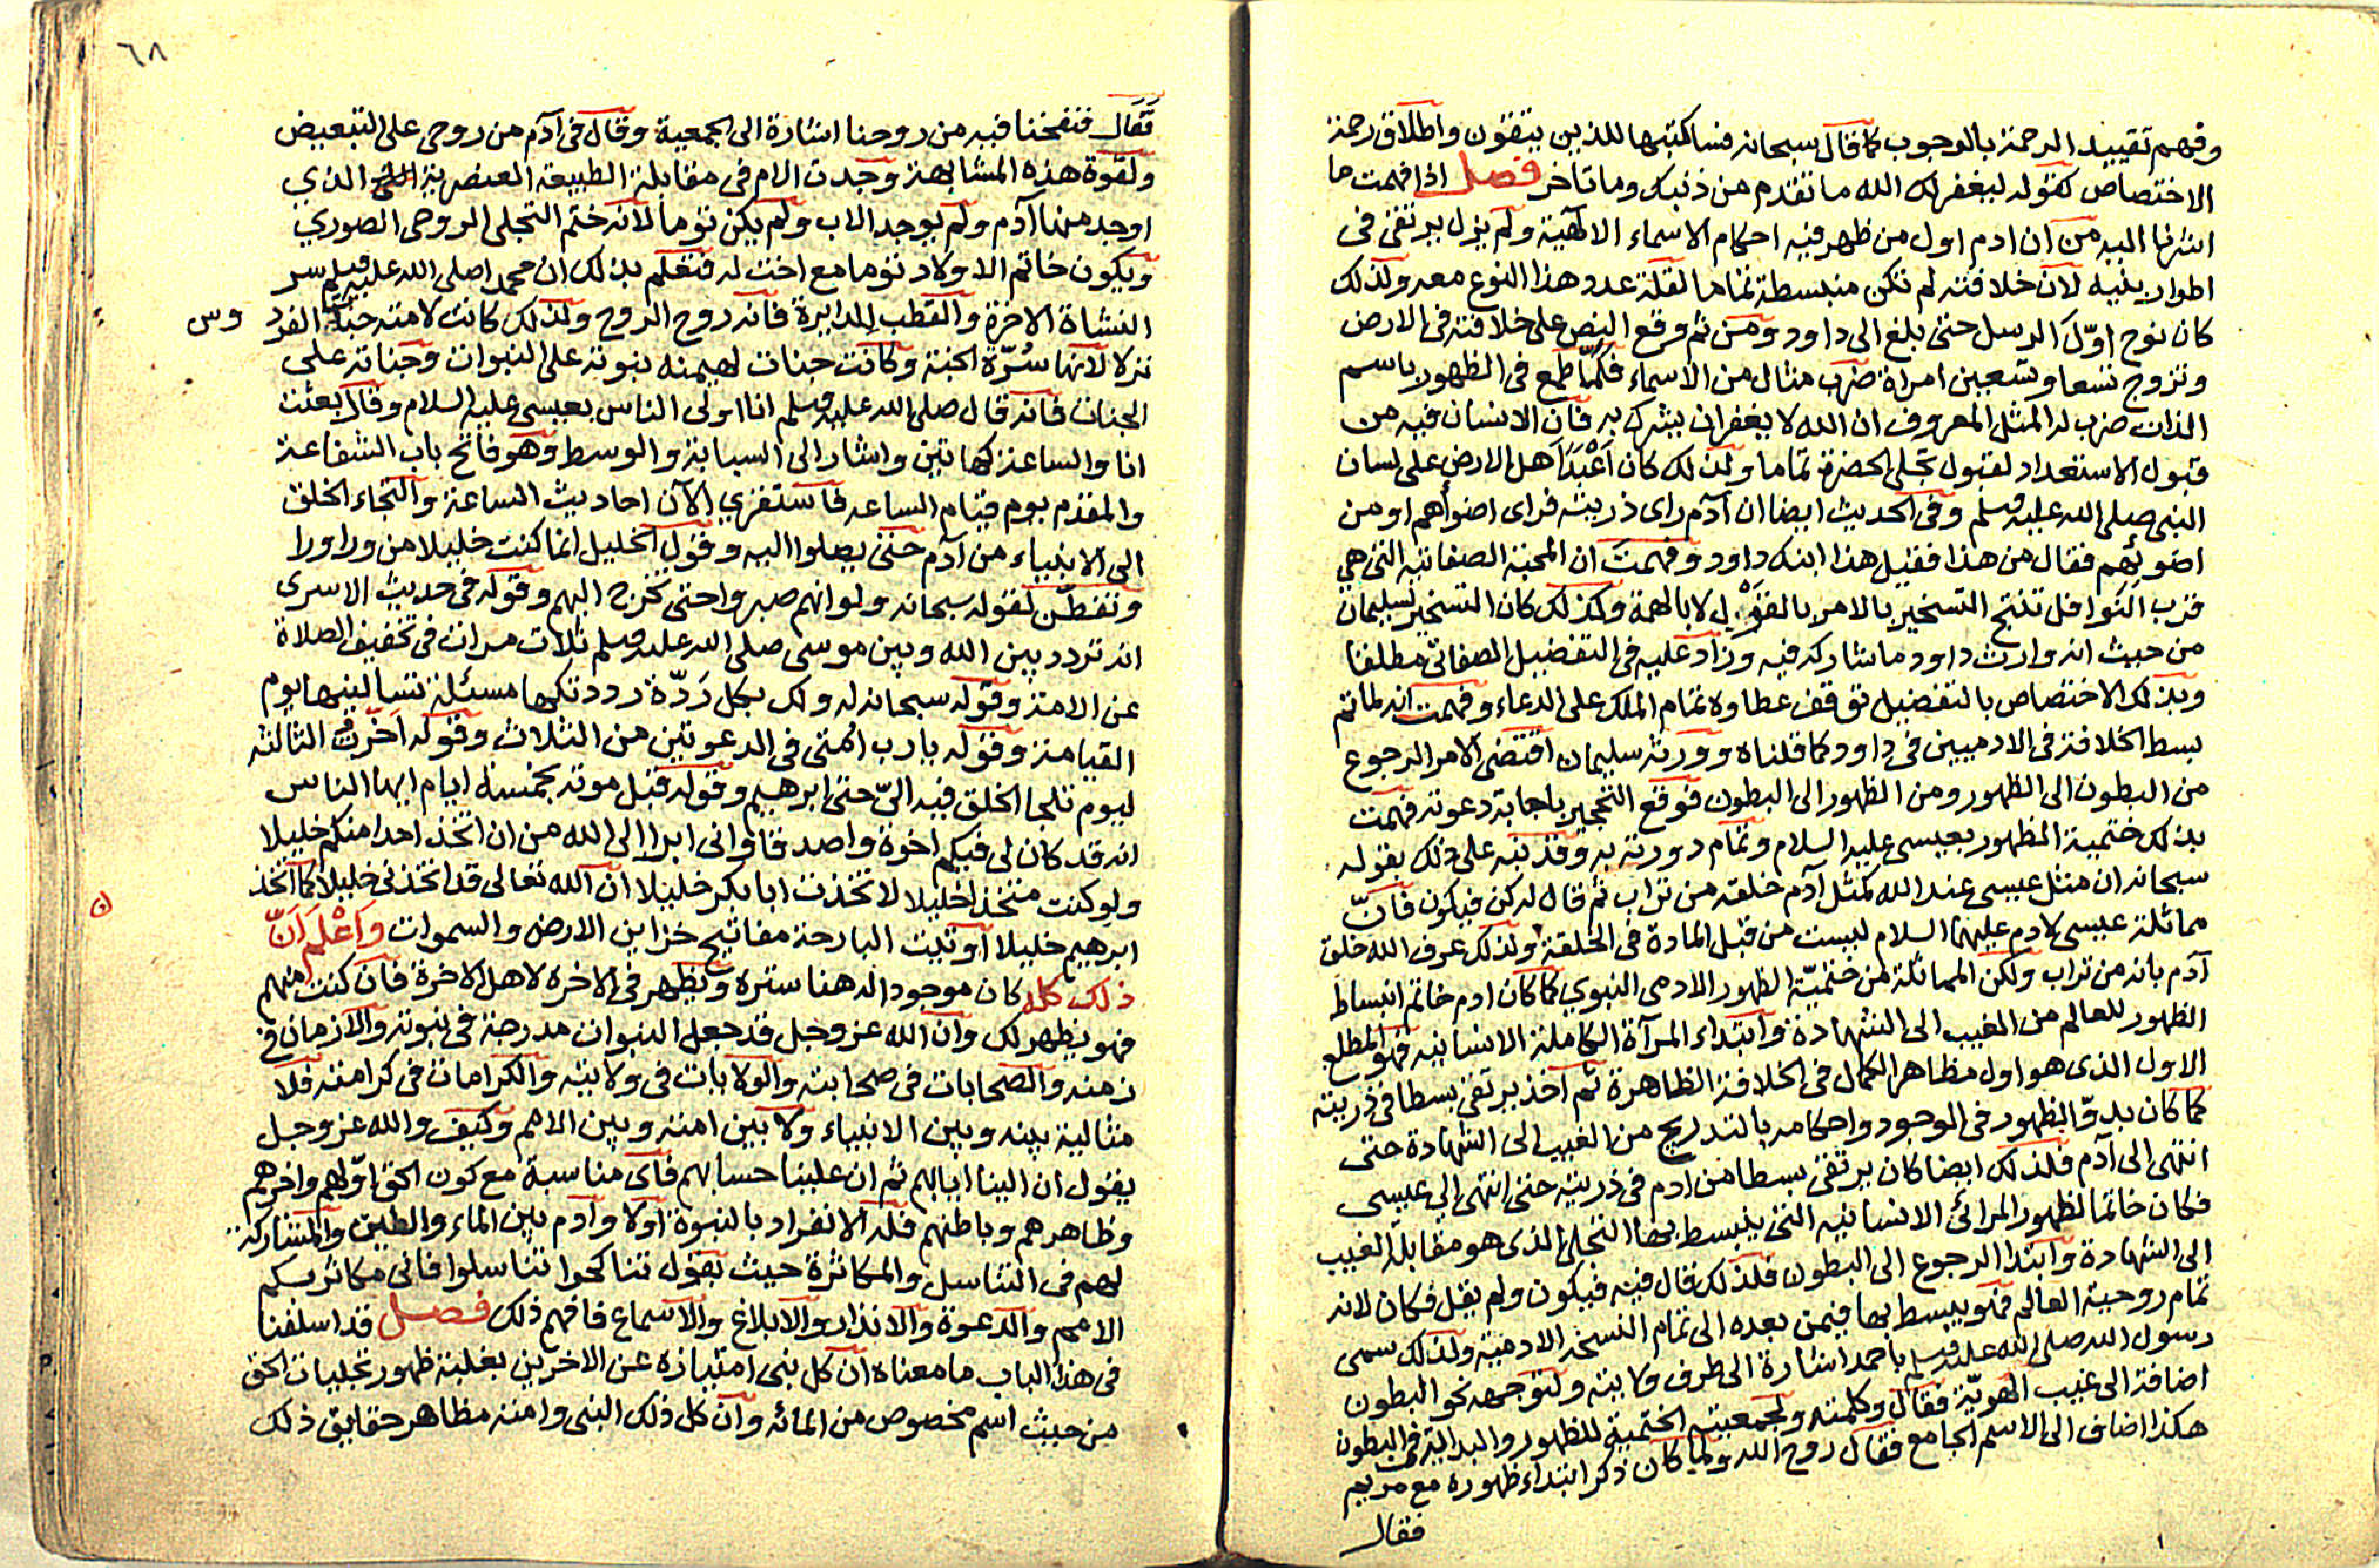 وفهم تقييد الرحمة بالوجوب كما قال سبحانه فساكتبها للذين يتقون واطلاق رحمة
الاختصاص كقوله ليغفر لك الله ما تقدم من ذنبك وما تأخر فصل اذا فهمت ما
اشرنا اليه من ان ادم اول من ظهر فيه احكام الاسماء الالهية ولم يزل يرتقى فى
اطوار بنيه لان خلافته لم تكن منبسطة تماما لقلة عدد هذا النوع معه ولذلك
كان نوح اوّل الرسل حتى بلغ الى داود ومن ثم وقع النص على خلافته فى الارض
وتزوج تسعا وتسعين امراة ضرب مثال من الاسماء فلما طمع فى الظهور باسم
الذات ضرب له المثل المعروف ان الله لا يغفر ان يشرك به فان الانسان فيه من
قبول الاستعداد لقبول تجلى الحضرة تماما ولذلك كان اَعْبَدَ اَهل الارض على لسان
النبى صلى الله عليه وسلم وفى الحديث ايضا ان آدم راى ذريته فراى اضوأهم او من
اضوئهم فقال من هذا فقيل هذا ابنك داود وفهمت ان المحبة الصفاتيه التى هي
قرب النوافل تنتج التسخير بالامر بالقول لا بالهمة وكذلك كان التسخير لسليمان
من حيث انه وارث داود ما شاركه فيه وزاد عليه فى التفضيل الصفاتى مطلقا
وبذلك الاختصاص بالتفضيل توقف عطاوه تمام الملك على الدعاء وفهمت انه لما تم
بسط الخلافة فى الادميين فى داود كما قلناه وورثه سليمان اقتضى الامر الرجوع
من البطون الى الظهور ومن الظهور الى البطون فوقع التحجير باجابة دعوته فهمت
بذلك ختمية الظهور بعيسى عليه السلام وتمام دورته به وقد نبه على ذلك بقوله
سبحانه ان مثل عيسى عند الله كمثل آدم خلقه من تراب ثم قال له كن فيكون فانّ
مماثلة عيسى لادم عليهما السلام ليست من قبل المادة فى الخلقة ولذلك عرف الله خلق
آدم بانه من تراب ولكن المماثلة من ختميّة الظهور الادمى النبوي كما كان ادم خاتم انبساط
الظهور للعالم من الغيب الى الشهادة وابتداء المرآة الكاملة الانسانيه فهو المطلع
الاول الذى هو اول مظاهر الكمال فى الخلافة الظاهرة ثم اخذ يرتقى بسطا فى ذريته
كما كان بدوّ الظهور فى الوجود واحكامه بالتدريج من الغيب الى الشهادة حتى
انتهى الى آدم فلذلك ايضا كان يرتقى بسطا من ادم فى ذريته حتى انتهى الى عيسى
فكان خاتما لظهور المرائى الانسانيه التى ينبسط بها التجلى الذى هو مقابلة الغيب
الى الشهادة وابتدا الرجوع الى البطون فلذلك قال فيه فيكون ولم يقل فكان لانه
تمام روحية العالم فهو ينبسط بها فيمن بعده الى تمام النسخه الادمية ولذلك سمى
رسول الله صلى الله عليه وسلم باحمد اشارة الى طرف ولايته ولتوجهه نحو البطون
اضافة الى غيب الهويّة فقال وكلمته ولجمعيته الختمية للظهور والبداية فى البطون
هكذا اضاف الى الاسم الجامع فقال روح الله ولما كان ذكر ابتداء ظهوره مع مريم
فقال
٦٨
فَقَال فنفخنا فيه من روحنا اشارة الى الجمعية وقال فى آدم من روحى على التبعيض
ولقوة هذه المشابهة وجدت الام فى مقابلة الطبيعة العنصرية الذي
اوجد منها آدم ولم يوجد الاب ولم يكن توما لانه ختم التجلى الروحى الصوري
ويكون خاتم الاولاد توما مع اخت له فتعلم بذلك ان محمدا صلى الله عليه وسلم سر
النشاة الاخرة والقطب للدايرة فانه روح الروح ولذلك كانت لامته جنة الفرد وس
نزلا لانها سُرّة الجنة وكانت جنات لهيمنه نبوته على النبوات وجناته على
الجنات فانه قال صلى الله عليه وسلم انا اولى الناس بعيسى عليه السلام وقال بعثت
انا والساعة كهاتين واشار الى السبابة والوسط وهو فاتح باب الشفاعة
والمقدم يوم قيام الساعه فاستقري الآن احاديث الساعة والتجاء الخلق
الى الانبياء من آدم حتى يصلوا اليه وقول الخليل انما كنت خليلا من ورا ورا
وتفطّن لقوله سبحانه ولو انهم صبروا حتى تخرج اليهم وقوله فى حديث الاسرى
انه تردد بين الله وبين موسى صلى الله عليه وسلم ثلاث مرات فى تخفيف الصلاة
عن الامة وقوله سبحانه له ولك بكل رَدّة رددتكها مسئلة تسألنيها يوم
القيامة وقوله يا رب امتى فى الدعوتين من الثلاث وقوله اَخّرتُ الثالثه
ليوم تلجا الخلق فيه الىّ حتى ابرهيم وقوله قبل موته بخمسة ايام ايها الناس
انه قد كان لى فيكم اخوة واصدقا وانى ابرا الى الله من ان اتخذ احدا منكم خليلا
ولو كنت متخذا خليلا لاتخذت ابا بكر خليلا ان الله تعالى قد اتخذنى خليلا كما اتخذ
ابرهيم خليلا اوتيت البارحة مفاتيح خزاين الارض والسموات وَاَعْلَم اَنّ
ذلك كله كان موجودا له هنا ستره ويظهر فى الاخره لاهل الاخرة فان كنت منهم
فهو يظهر لك وان الله عز وجل قد جعل النبوات مدرجة فى نبوته والازمان فى
زمنه والصحابات فى صحابته والولايات فى ولايته والكرامات فى كرامته فلا
مثالية بينه وبين الانبياء ولا بين امته وبين الامم وكيف والله عز وجل
يقول ان الينا ايابهم ثم ان علينا حسابهم فاى مناسبة مع كون الحق اوّلهم واخرهم
وظاهرهم وباطنهم فله الانفراد بالنبوة اولا وآدم بين الماء والطين والمشاركة
لهم فى التناسل والمكاثرة حيث يقول تناكحوا تناسلوا فانى مكاثر بكم
الامم والدعوة والانذار والابلاغ والاسماع فافهم ذلك فصل قد اسلفنا
فى هذا الباب ما معناه ان كل نبى امتيازه عن الاخرين بغلبة ظهور تجليات الحق
من حيث اسم مخصوص من المائه وان كل ذلك النبى وامته مظاهر حقايق ذلك